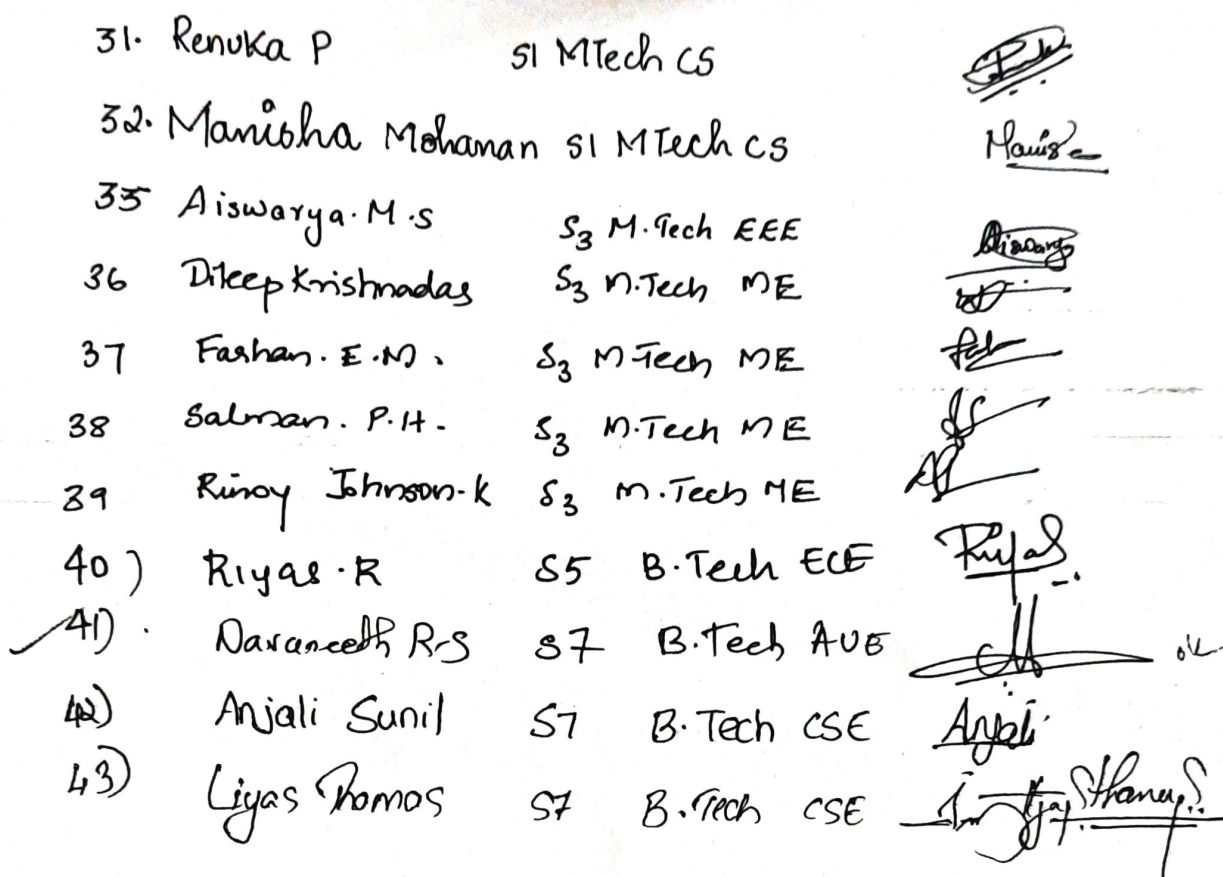 31. Renuka P S1 MTech CS
32. Manisha Mohanan S1 MTech CS Manis
35 Aiswarya. M.S S3 M.Tech EEE Aiswarya
36 Dileep Krishnadas S3 M.Tech ME
37 Farhan. E.M. S3 M.Tech ME
38 Salman. P.H. S3 M.Tech ME
39 Rinoy Johnson.K S3 M.Tech ME
40) Riyas.R S5 B.Tech ECE Riyas
41). Navaneeth R.S S7 B.Tech AUE ok
42) Anjali Sunil S7 B.Tech CSE Anjali
43) Liyas Thomas S7 B.Tech CSE